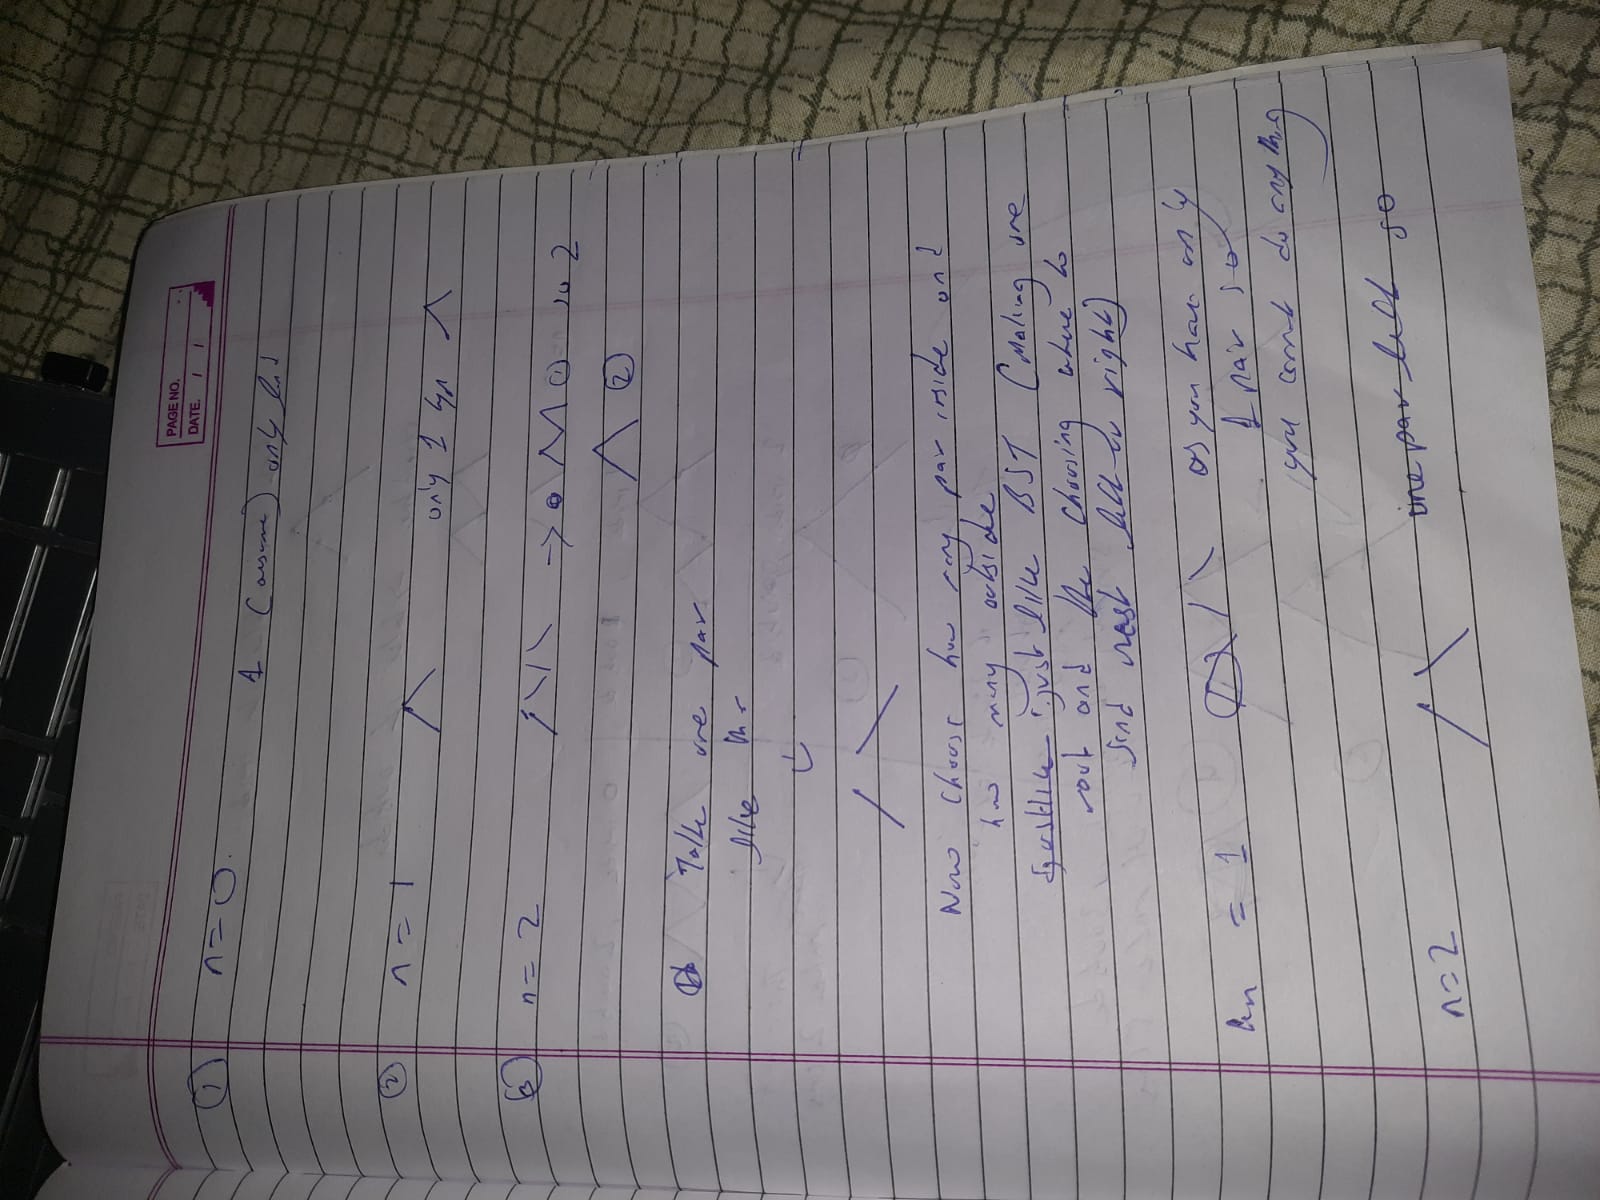 PAGE NO.
DATE. / /
① n = 0.
1 (assume) only land
② n = 1
only 1 type
③ n = 2
→ ① so 2
②
Take one pair
like this
Now choose how many pair inside and
how many outside
just like BST (Making one
root and the choosing where to
find next left or right)
n = 1 as you have only
1 pair so
you cannot do anything
n = 2 one pair left so